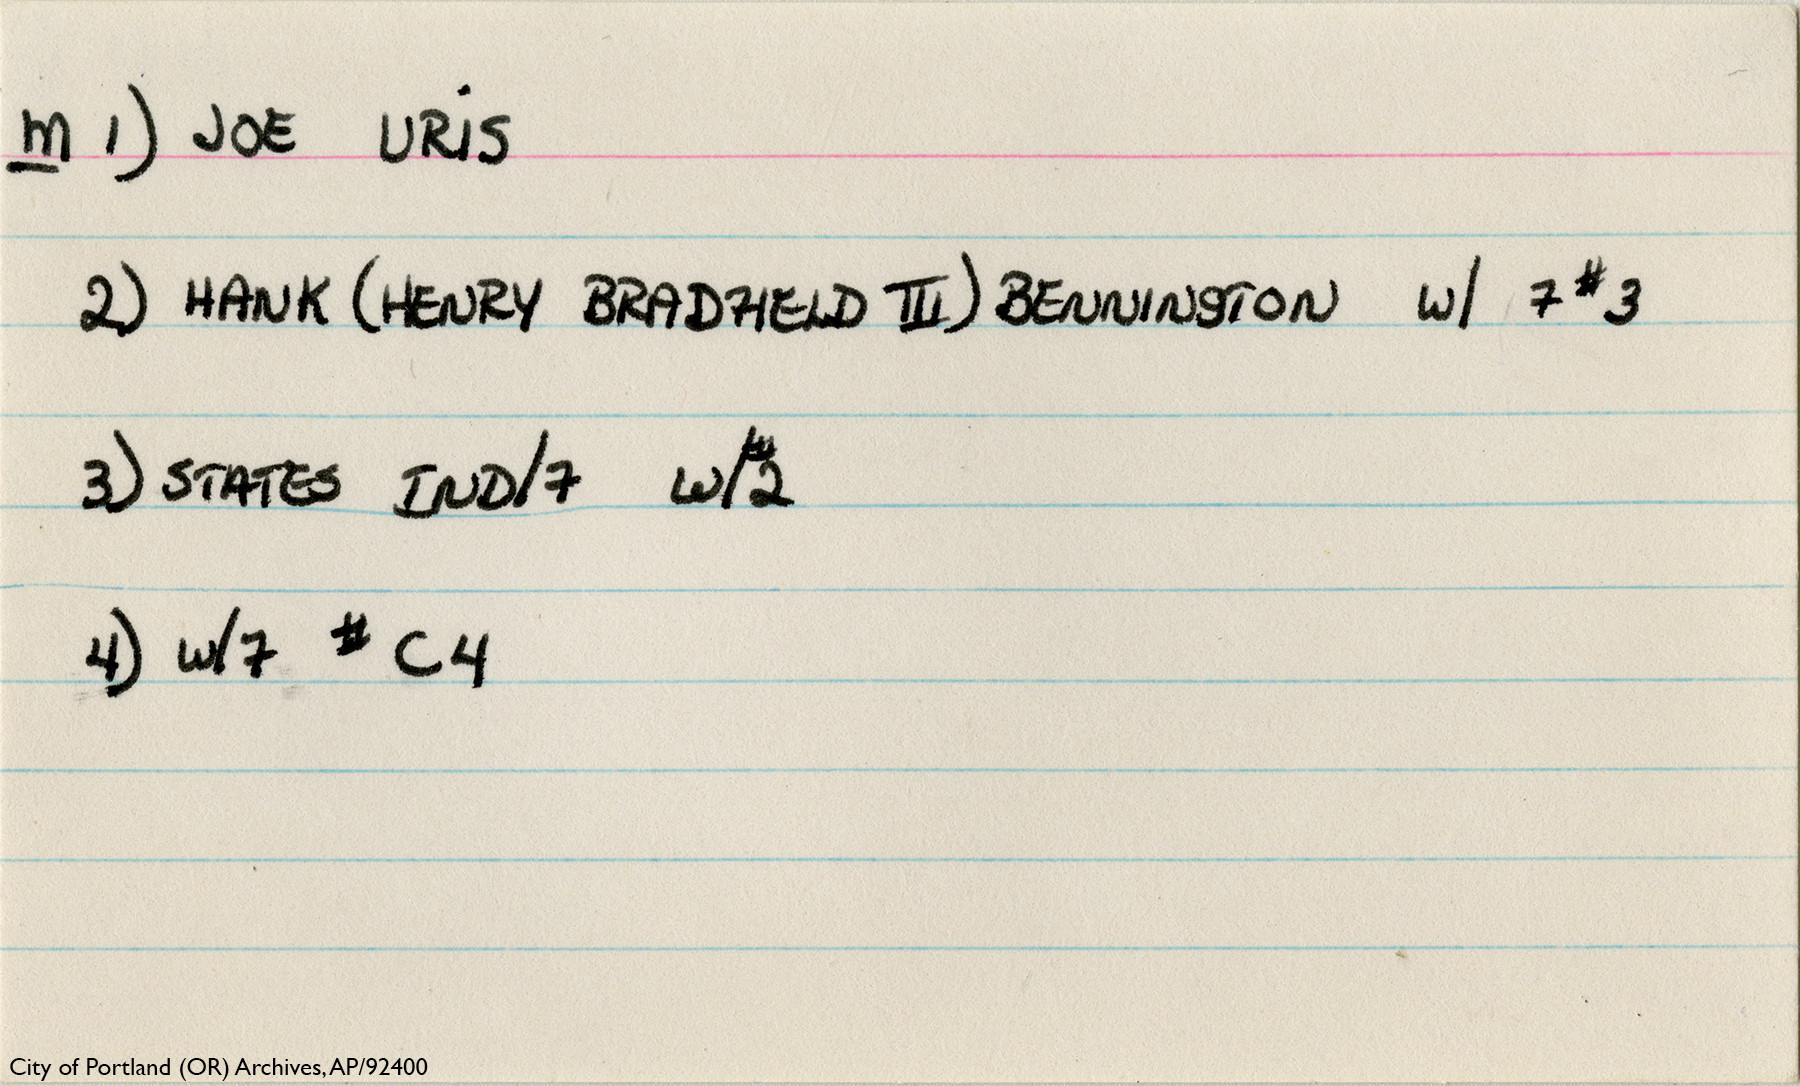 m 1) JOE URiS
2) HANK (HENRY BRADFIELD III) BENNINGTON w/ 7 #3
3) STATES IND/7 w/#2
4) w/7 # C4
City of Portland (OR) Archives, AP/92400